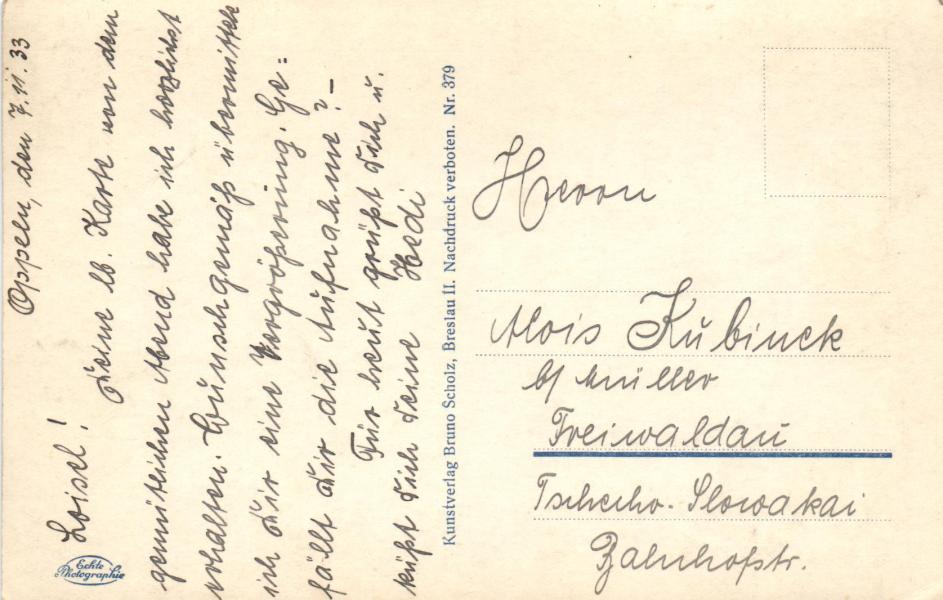 Oppeln, den 7.11.33
Loisel!
Deine lb. Karte von dem
gemütlichen Abend habe ich herzlichst
erhalten. Wunschgemäß übermittle
ich Dir eine Vergrößerung. Ge=
fällt Dir die Aufnahme? –
Für heut grüßt Dich u.
küßt Dich Deine Hedi
Echte
Photographie
Kunstverlag Bruno Scholz, Breslau II. Nachdruck verboten. Nr. 379
Herrn
Alois Kubinek
b/ Müller
Freiwaldau
Tschecho-Slowakai
Bahnhofstr.